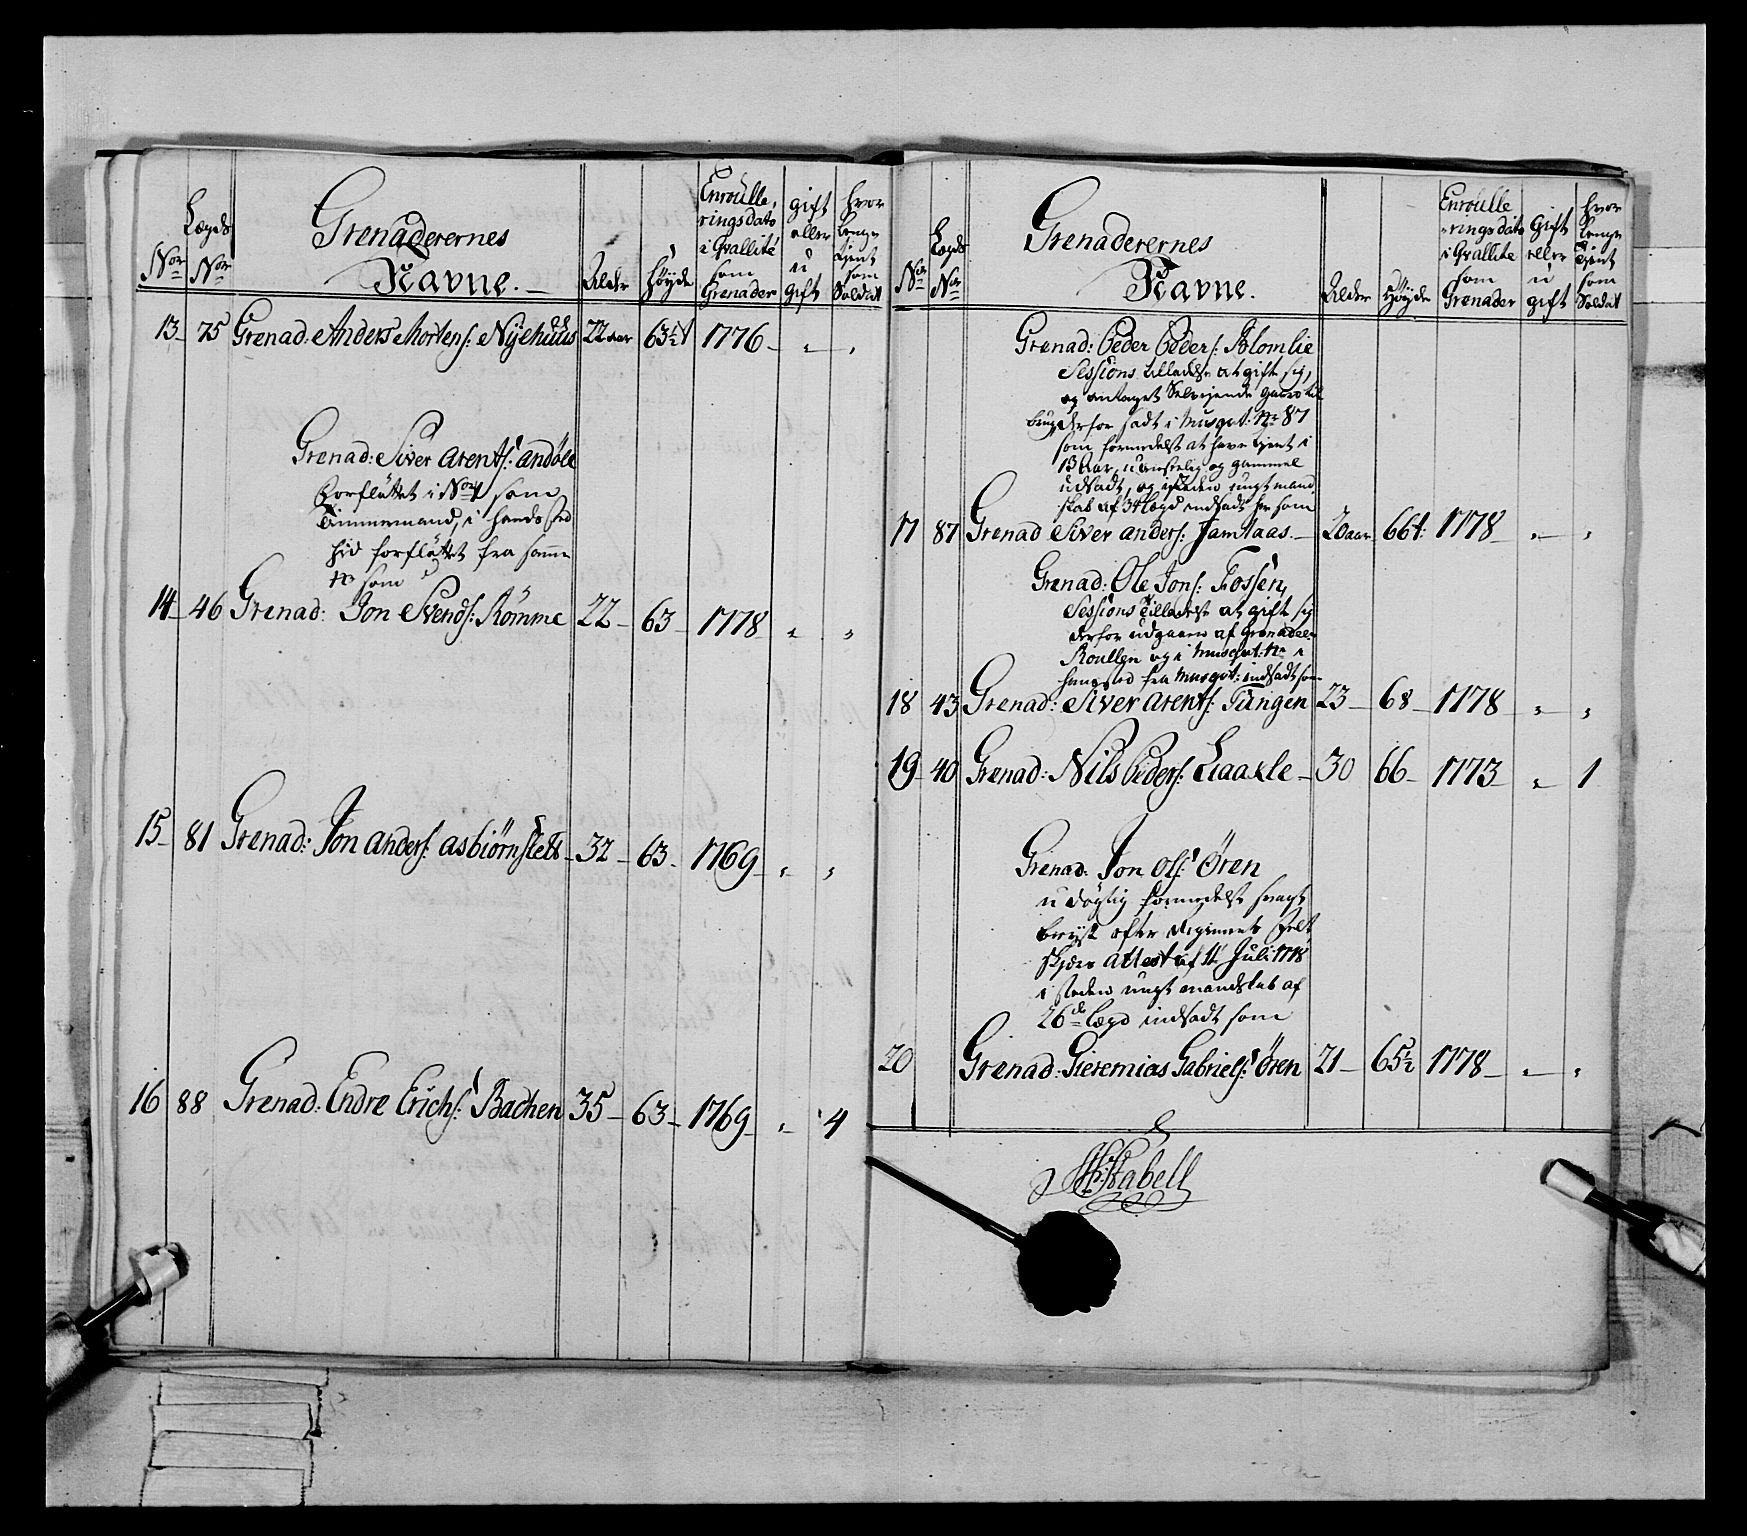 Nor Lægds Nor Grenaderernes Navne. Alder Høyde Enroullerings dato i Qvallité som Grenader gift eller u gift hvor lenge tient som Soldat
13 75 Grenad. Anders Mortens: Nyehuus 22 aar 63½ 1776
Grenad: Siver Arents: Andøl
forflüttet i Nor 4 som
Timmermand, i hands sted
hid forflüttet fra samme
No som
14 46 Grenad: Jon Svends: Rømme 22 63 1778
15 81 Grenad: Jon Anders: Asbiørnslett 32 63 1769
16 88 Grenad: Endre Erichs: Bachen 35 63 1769 4
Nor Lægds Nor Grenaderernes Navne. Alder Høyde Enroullerings dato i Qvallité som Grenader Gift eller u gift hvor lenge Tient som Soldat
Grenad: Peder Peders: Blomlie
Sessions tilladelse at gift sig,
og antaget Selveyende gaard til
brug derfor sadt i Musqvt: No 87
som formedelst at have tient i
13 Aar, uanselig og gammel
udsadt, og i steden ungt mand
skab af 34 Lægd indsadt her som
17 87 Grenad Siver Anders: Jamtaas 20 aar 66 1778
Grenad: Ole Jons: Fossen,
Sessions Tilladelse at gift sig
derfor udgaaen af Grenadeer
Roullen og i Musqvt: No i
hans sted fra Musqvt: indsadt som
18 43 Grenad: Siver Arents: Tungen 23 68 1778
19 40 Grenad: Nils Peders: Liaaxle 30 66 1773 1
Grenad: Jon Ols: Øren
udøgtig formedelst svagt
bryst efter Regiments Felt
skjær Attest af Juli 1778
i steden ungt mandskab af
26de Lægd indsadt som
20 Grenad: Gieremias Gabriels: Øren 21 65½ 1778
Stabell